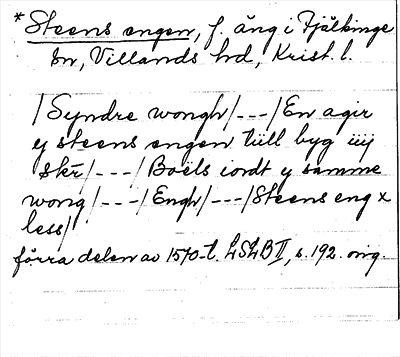 * Steens engen, f. äng i Fjälkinge
sn, Villands hd, Krist. l.
/Syndre wongh/---/En agir
y steens engen tiill byg iiij
skr/---/Boëls iordt y samme
wong/---/Engh/---/Steens eng x
less/
förra delen av 1570-t. LSLB II, s. 192. orig.